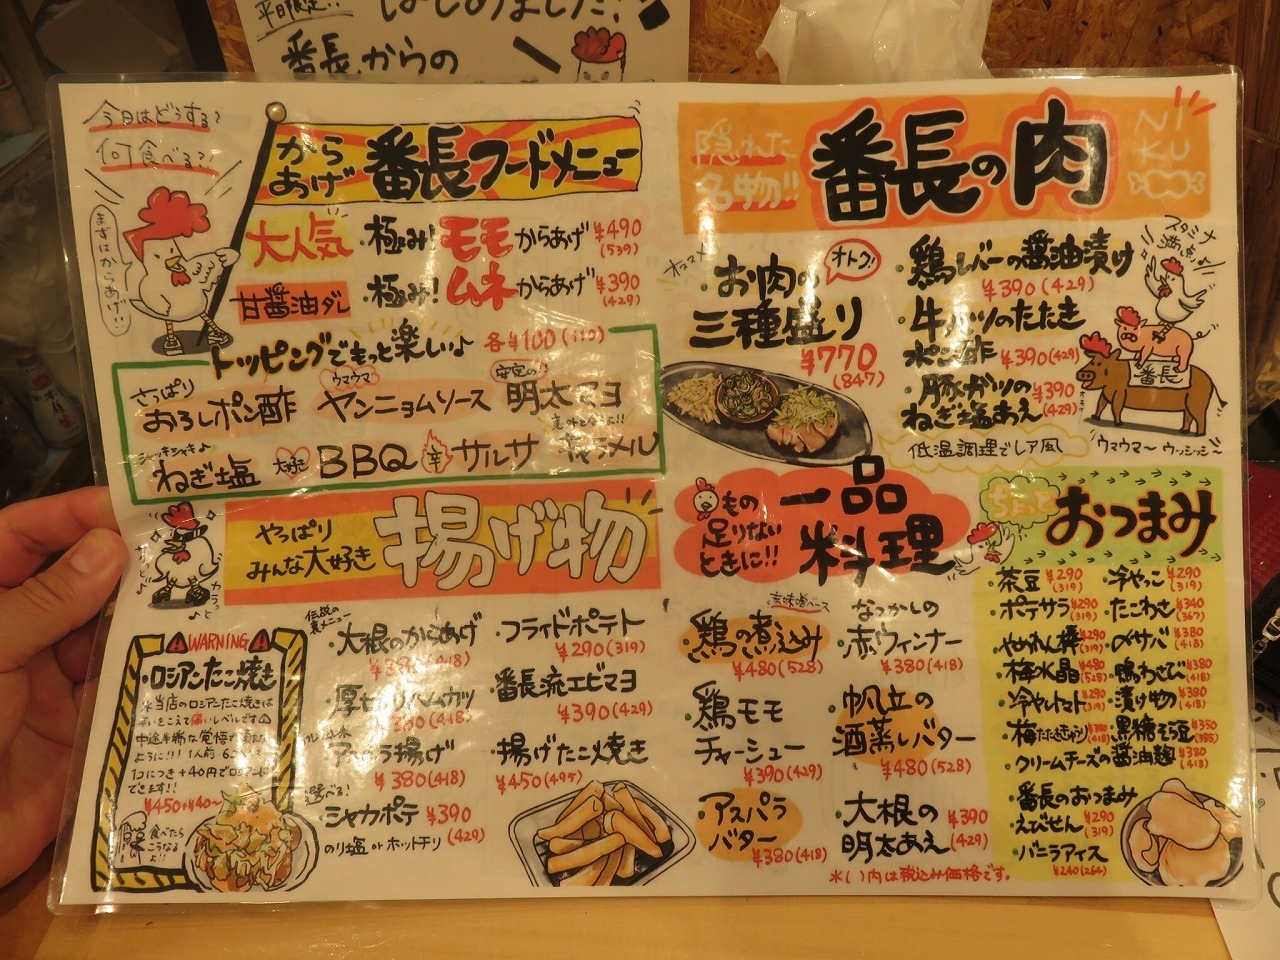 平日限定!!
はじめました!
番長からの
今日はどうする?
何食べる?!
まずはからあげ!!
からあげ
番長フードメニュー
大人気
・極み!モモからあげ ¥490
(539)
甘醤油ダレ
・極み!ムネからあげ ¥390
(429)
トッピングでもっと楽しい♪ 各¥100(110)
さっぱり
おろしポン酢
ウマウマ
ヤンニョムソース
安定の!!
明太マヨ
シャッキシャキ♪
ねぎ塩
大好き
BBQ
辛
サルサ
意外となよ!!
キャラメル
やっぱり
みんな大好き
揚げ物
WARNING
・ロシアンたこ焼き
※当店のロシアンたこ焼きは
辛いをこえて痛いレベルです
中途半端な覚悟で頼まない
ように!!! 1人前 6コ
1コにつき+40円でロシアンに
できます!!
¥450+¥40~
食べたら
こうなる
よ!!
伝説の
裏メニュー
・大根のからあげ
(418)
・厚切りハムカツ
(418)
揚げ
¥380(418)
選べる!
・シャカポテ ¥390
(429)
のり塩 or ホットチリ
・フライドポテト
¥290(319)
・番長流エビマヨ
¥390(429)
・揚げたこ焼き
¥450(495)
隠れた
名物!!
番長の肉
NIKU
オススメ
・お肉の
三種盛り
オトク!!
¥770
(847)
・鶏レバーの醤油漬け
¥390(429)
・牛ハツのたたき
ポン酢 ¥390(429)
・豚ガツの
ねぎ塩あえ
¥390
(429)
低温調理でレア風
スタミナ
満点♪
番長
ウマウマ~ウッシッシ~
もの
足りない
ときに!!
一品
料理
玄味噌ベース
・鶏の煮込み
¥480(528)
・なつかしの
赤ウィンナー
¥380(418)
・鶏モモ
チャーシュー
¥390(429)
・帆立の
酒蒸しバター
¥480(528)
・アスパラ
バター
¥380(418)
・大根の
明太あえ
¥390
(429)
※( )内は税込み価格です。
ちょっと
おつまみ
・茶豆 ¥290
(319)
・冷やっこ ¥290
(319)
・ポテサラ ¥290
(319)
・たこわさ ¥340
(367)
¥290
(319)
・〆サバ ¥380
(418)
・梅水晶 ¥480
(528)
・鴨わさび ¥380
(418)
・冷やしトマト ¥290
(319)
・漬け物 ¥380
(418)
・梅たたききゅうり
・黒糖そら豆 ¥350
(385)
・クリームチーズの醤油麹 ¥380
(418)
・番長のおつまみ
えびせん ¥290
(319)
・バニラアイス
¥240(264)